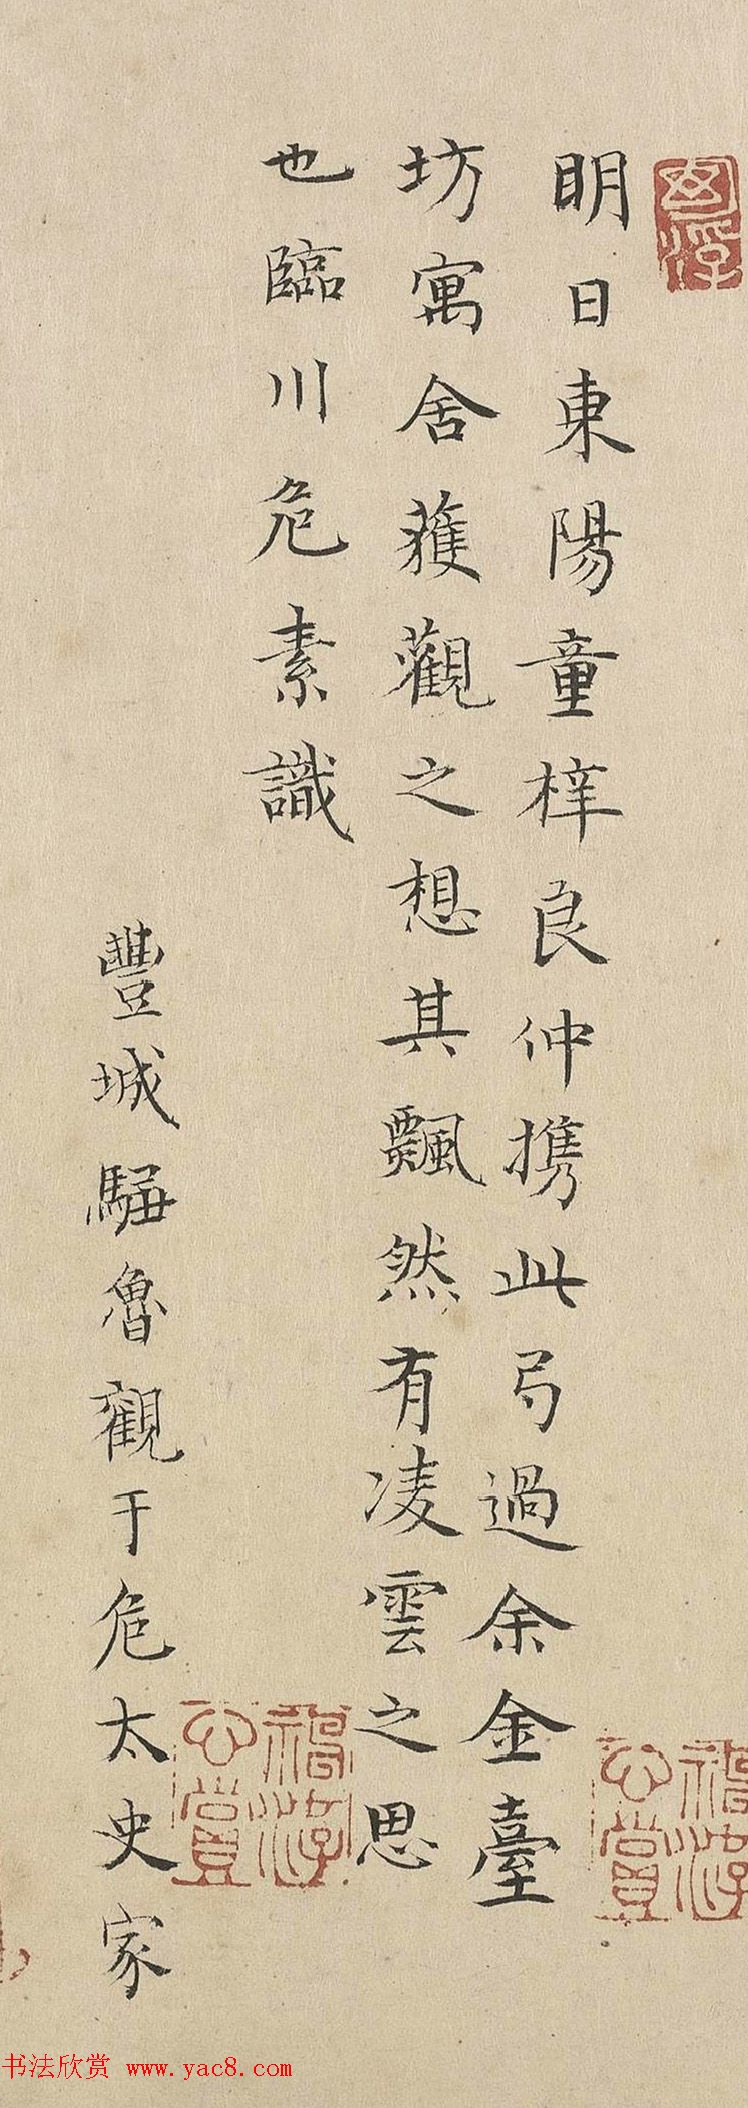 明日東陽童梓良仲携此弓過余金臺
坊寓舍獲觀之想其飄然有凌雲之思
也臨川危素識
豐城魯觀于危太史家
神游心賞
神游心賞
书法欣赏 www.yac8.com